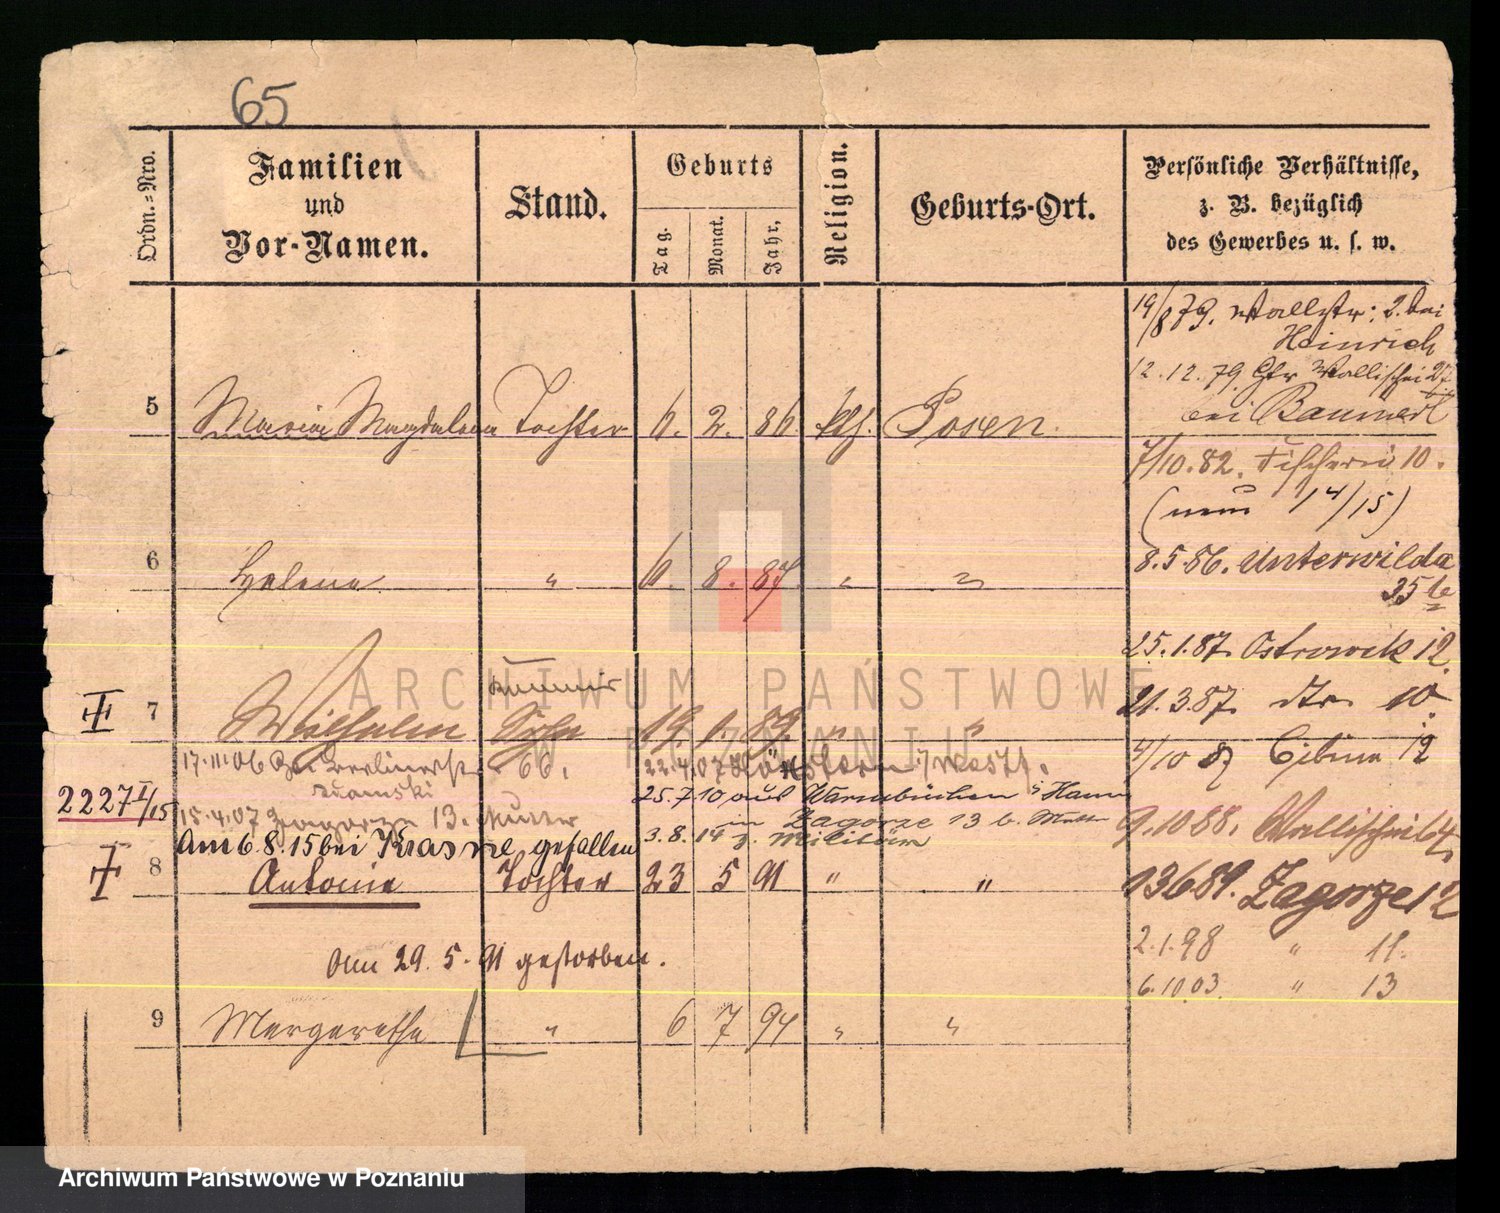 65
Ordn.-Nro.
Familien
und
Vor-Namen.
Stand.
Geburts
Tag.
Monat.
Jahr,
Religion.
Geburts-Ort.
Persönliche Verhältnisse,
z. B. bezüglich
des Gewerbes u. s. w.
19/8 79. Wallstr: 2. bei
Heinrich
12.12.79. Wallischei 27
bei Baumert
5 Maria Magdalena Tochter 6. 2. 86 kth. Posen
7/10.82. Fischerei 10.
(neu 14/15)
8.5.86. Unterwilda
35
6 Helene " 6. 8. 87. " "
25.1.87. Ostrowek 12
21.3.87. dto 10
III 7 Wilhelm Sohn 19. 1. 89. " "
4/10 87 Cibina 12
17.III 06 Berlinerstr. 66. 22.4.07
Adamski
25.7.10 aus Warmbüchen
2227 I/15
15.4.07 Zagorze 13. Mutter
in Zagorze 13 b. Mutter
3.8.14 z. Militär
9.10 88. Wallischei
Am 6 8. 15 bei Krasne gefallen
8 Antonie Tochter 23 5 91 " "
13 6 89. Zagorze 12
2.1.98 " 11.
am 29. 5. 91 gestorben.
6.10.03. " 13
9 Margarethe " 6 7 94 " "
ARCHIWUM PAŃSTWOWE
W POZNANIU
Archiwum Państwowe w Poznaniu